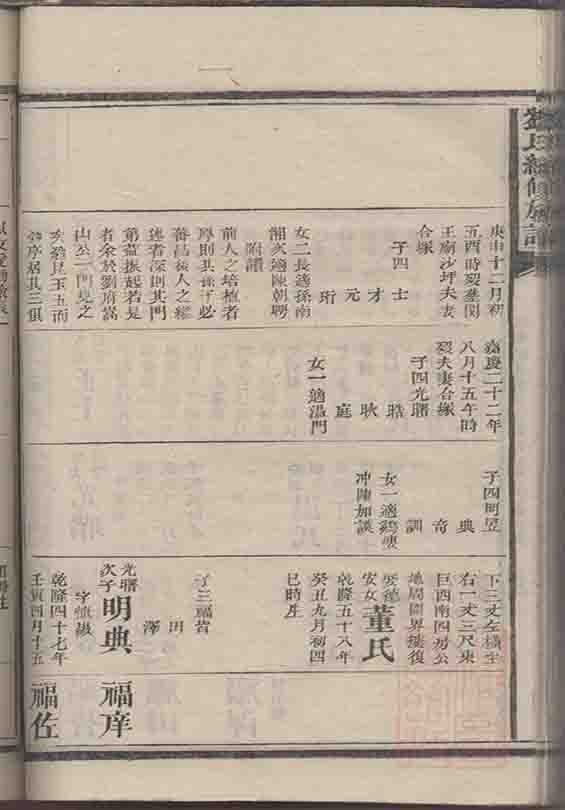 劉氏續修族譜
庚申十二月初
五酉時歿葬関
王廟沙坪夫妻
合塚
子四 士
才
元
珩
女二長適孫南
湘次適陳朝聘
附讚
前人之培植者
厚則其孫子必
蕃昌後人之繼
述者深則其門
第益振起若是
者余於劉府嵩
山公一門見之
居其三俱
嘉慶二十二年
八月十五午時
歿夫妻合塚
子四光曙
晧
耿
庭
女一適温門
子四明昱
典
奇
訓
女一適鷄婆
冲陳加謨
下三丈左橫主
右一丈三尺東
巨西南四房公
地周圍界摟復
娶德
安女董氏
乾隆五十八年
癸丑九月初四
巳時生
子三福岩
田
澤
光曙
次子明典
字慎級
乾隆四十七年
壬寅四月十五
福庠
福佐